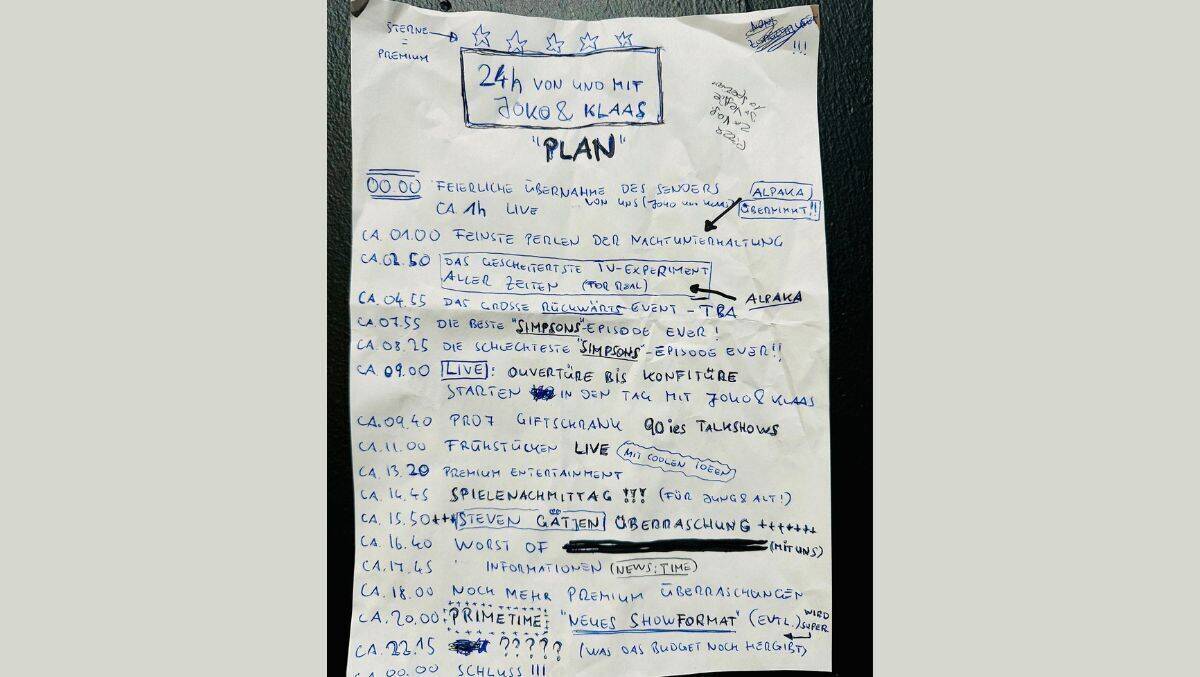 STERNE
=
PREMIUM
NOCH
!!!
24h VON UND MIT
JOKO & KLAAS
"PLAN"
00.00 FEIERLICHE ÜBERNAHME DES SENDERS
VON UNS (JOKO UND KLAAS)
CA. 1h LIVE
ALPAKA
ÜBERNIMMT!!
CA. 01.00 FEINSTE PERLEN DER NACHTUNTERHALTUNG
CA. 02.50 DAS GESCHEITERTSTE TV-EXPERIMENT
ALLER ZEITEN (FOR REAL)
ALPAKA
CA. 04.55 DAS GROSSE RÜCKWÄRTS-EVENT - TBA
CA. 07.55 DIE BESTE "SIMPSONS"-EPISODE EVER!
CA. 08.25 DIE SCHLECHTESTE "SIMPSONS"-EPISODE EVER!!
CA. 09.00 LIVE: OUVERTÜRE BIS KONFITÜRE
STARTEN IN DEN TAG MIT JOKO & KLAAS
CA. 09.40 PRO7 GIFTSCHRANK 90ies TALKSHOWS
CA. 11.00 FRÜHSTÜCKEN LIVE (MIT COOLEN IDEEN)
CA. 13.20 PREMIUM ENTERTAINMENT
CA. 14.45 SPIELENACHMITTAG !!! (FÜR JUNG & ALT!)
CA. 15.50 +++ STEVEN GÄTJEN ÜBERRASCHUNG +++++++
CA. 16.40 WORST OF (MIT UNS)
CA. 17.45 INFORMATIONEN (NEWS:TIME)
CA. 18.00 NOCH MEHR PREMIUM ÜBERRASCHUNGEN
CA. 20.00 PRIMETIME "NEUES SHOWFORMAT" (EVTL.) WIRD
SUPER
CA. 22.15 ????? (WAS DAS BUDGET NOCH HERGIBT)
CA. 00.00 SCHLUSS !!!